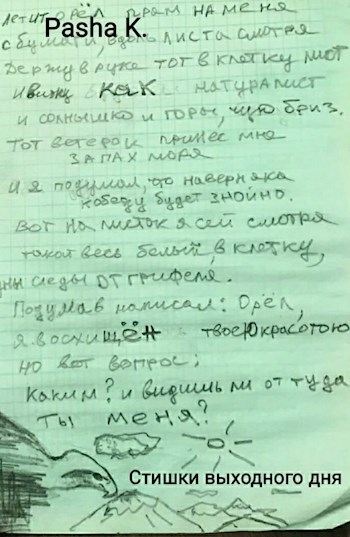 Летит орёл прям на меня
Pasha K.
с бумаги, вдоль листа смотря
Держу в руке тот в клетку лист
И вижу как натуралист
и солнышко и горы, чую бриз.
Тот ветерок принёс мне
запах моря
И я подумал, что наверняка
к обеду будет знойно.
Вот на листок я сей смотря
такой весь белый, в клетку,
следы от грифеля.
Подумав написал: Орёл,
я восхищён твоею красотою
но вот вопрос:
Каким? и видишь ли от туда
ты меня?
Стишки выходного дня